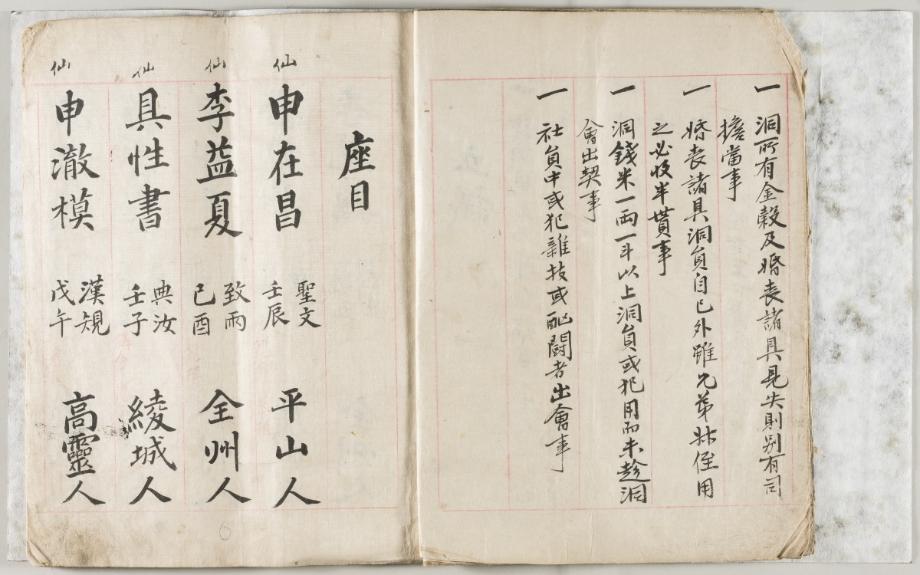 一 洞所有金穀及婚喪諸具見失則別有司
擔當事
一 婚喪諸具洞員自己外雖兄弟姑侄用
之必收半貰事
一 洞錢米一兩一斗以上洞員或犯用而未趁洞
會出契事
一 社員中或犯雜技或酗鬪者出會事
座目
仙 申在昌 聖文 壬辰 平山人
仙 李益夏 致雨 己酉 全州人
仙 具性書 典汝 壬子 綾城人
仙 申澈模 漢規 戊午 高靈人